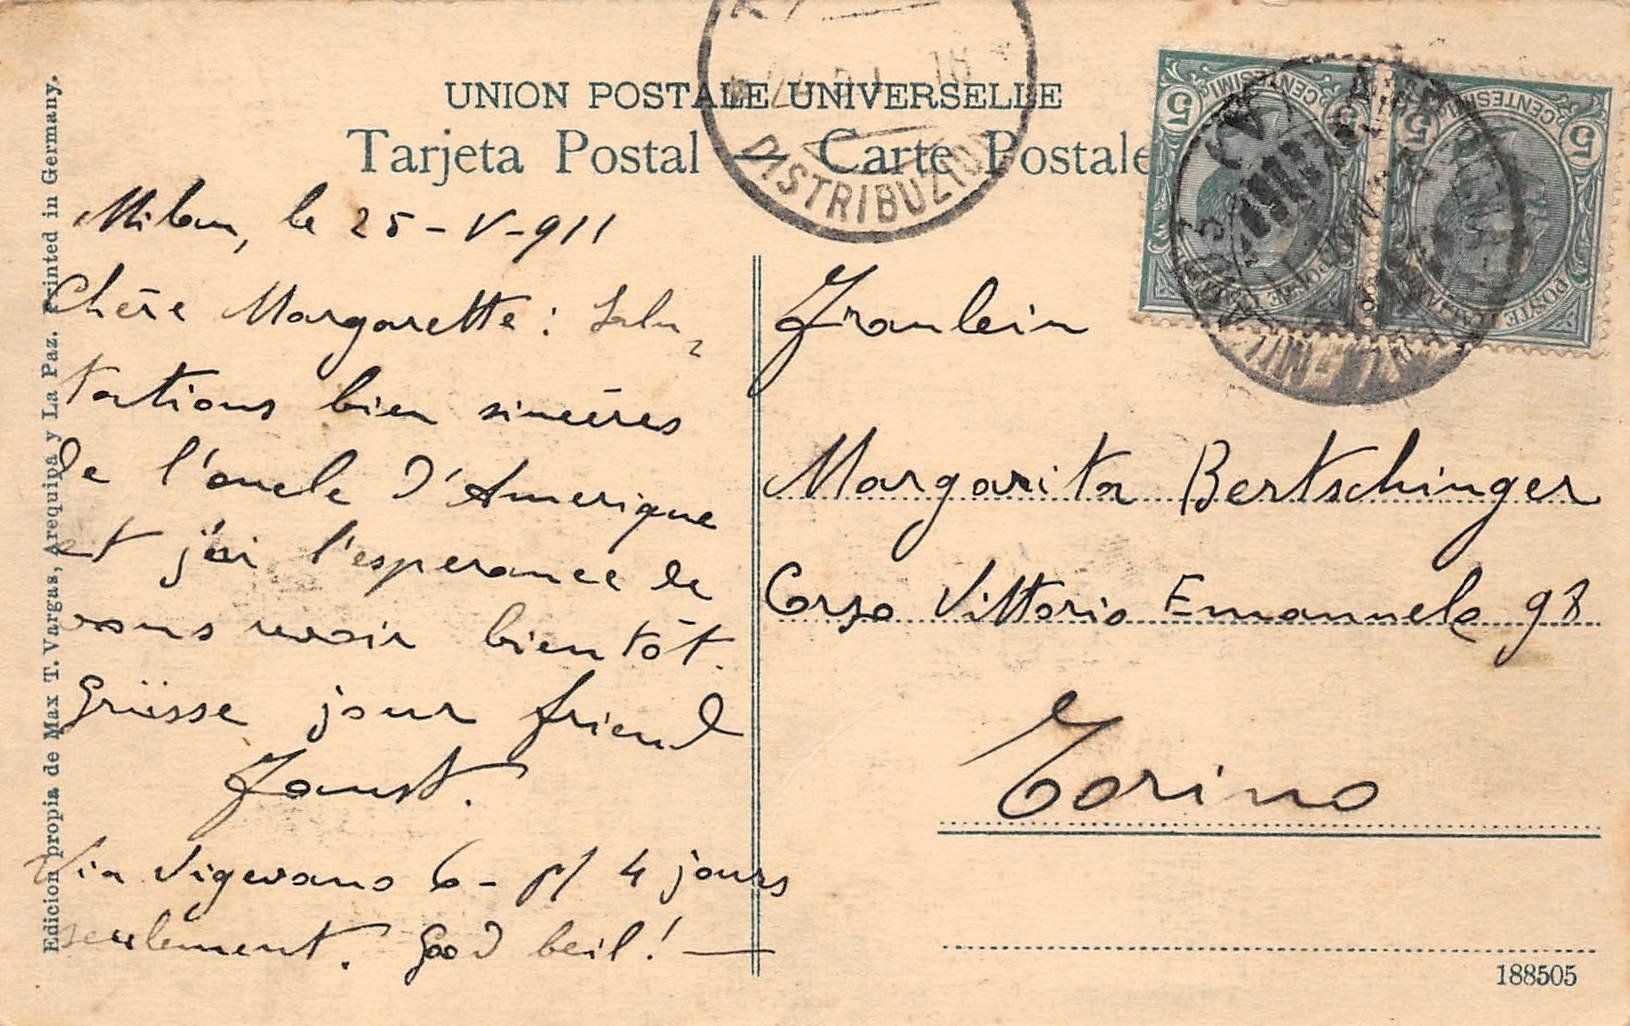 UNION POSTALE UNIVERSELLE
Tarjeta Postal — Carte Postale
DISTRIBUZIO
18
5 CENTESIMI 5
POSTE ITALIANE
5 CENTESIMI 5
POSTE ITALIANE
Edicion propia de Max T. Vargas, Arequipa y La Paz. Printed in Germany.
Milan, le 25-V-911
Chère Margarette: Salu-
tations bien sincères
de l'oncle d'Amerique
et j'ai l'esperance de
vous revoir bientôt.
Grüsse your friend
Faust.
Via Vigevano 6 - p/ 4 jours
seulement. Good beil! —
Fräulein
Margarita Bertschinger
Corso Vittorio Emanuele 98
Torino
188505